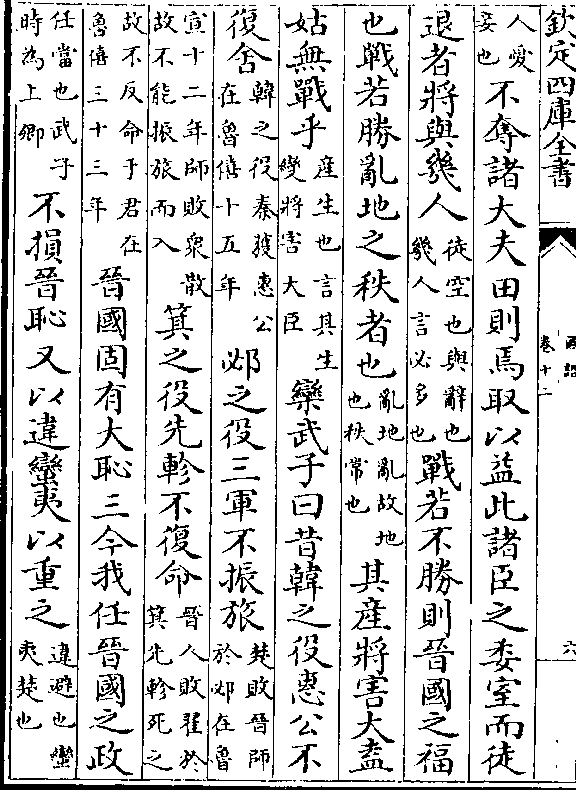 欽定四庫全書
國語
卷十二
六
人愛妾也不奪諸大夫田則焉取以益此諸臣之委室而徒
退者將與幾人徒空也與辭也幾人言必多也戰若不勝則晉國之福
也戰若勝亂地之秩者也亂地亂故地也秩常也其產將害大盍
姑無戰乎產生也言其生變將害大臣欒武子曰昔韓之役惠公不
復舍韓之役秦獲惠公在魯僖十五年邲之役三軍不振旅楚敗晉師於邲在魯
宣十二年師敗衆散故不能振旅而入箕之役先軫不復命晉人敗翟於箕先軫死之
故不反命于君在魯僖三十三年晉國固有大恥三今我任晉國之政
任當也武子時為上卿不損晉恥又以違蠻夷以重之違避也蠻夷楚也